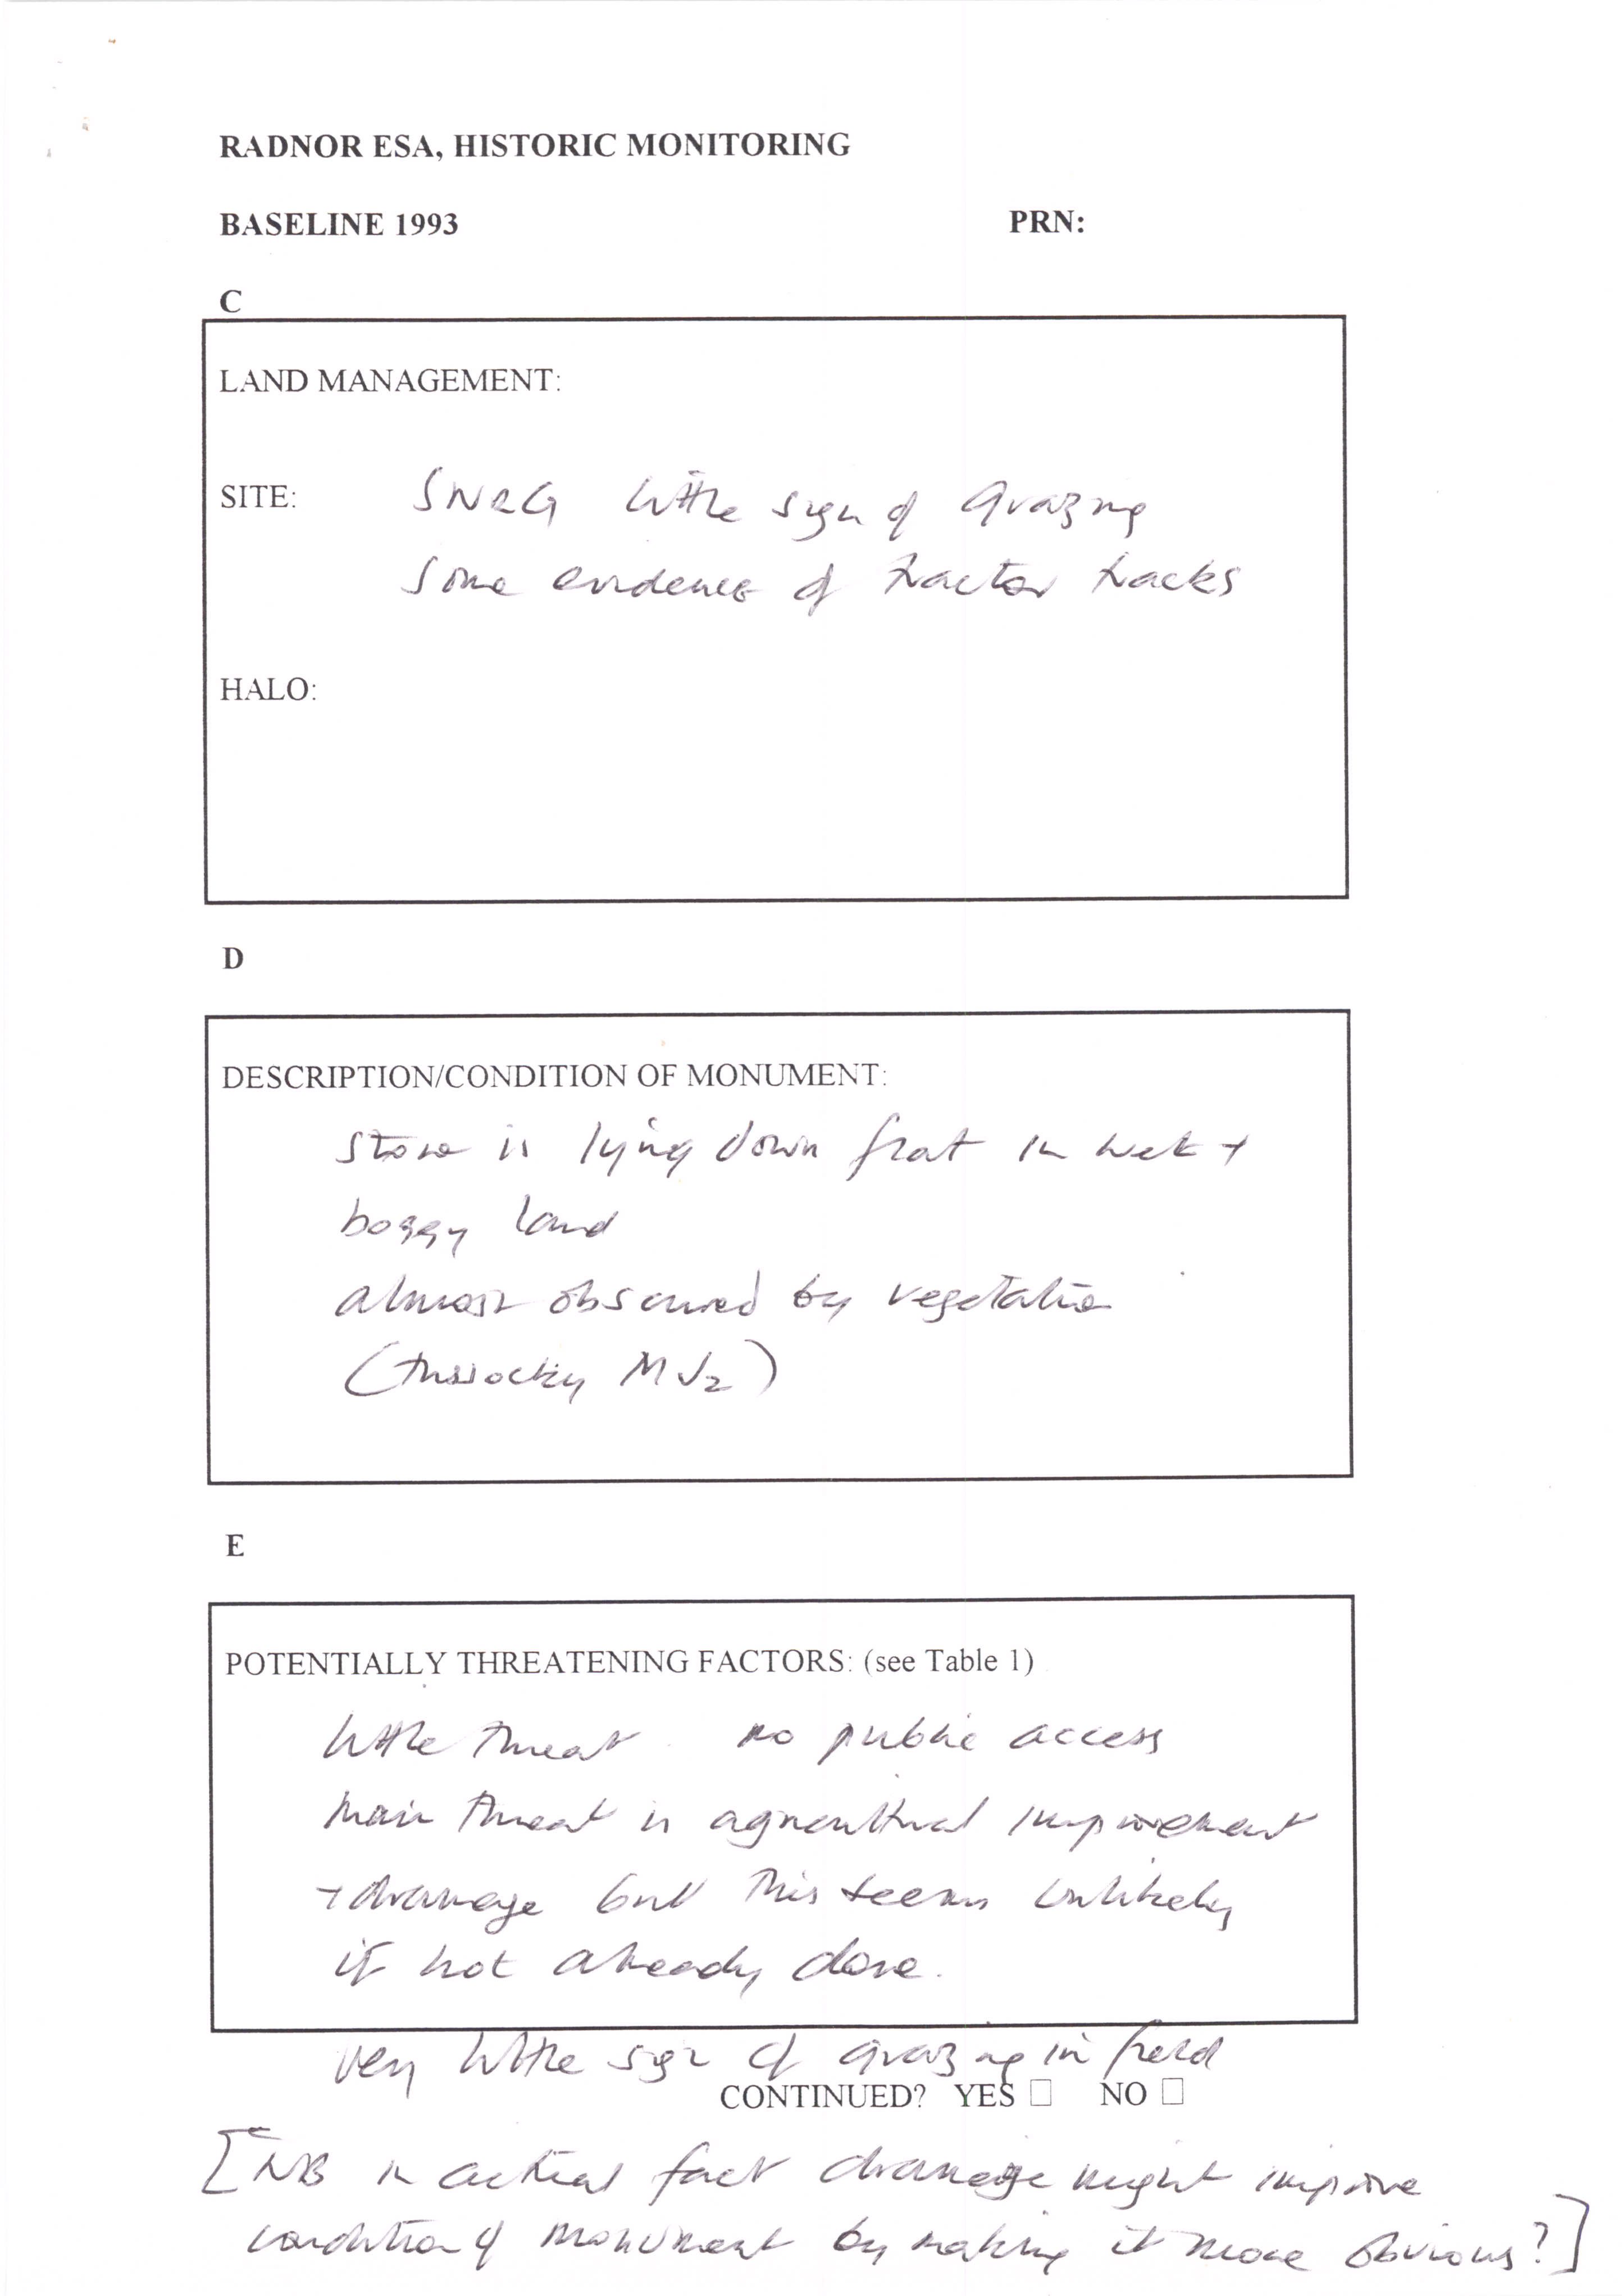 RADNOR ESA, HISTORIC MONITORING
BASELINE 1993 PRN:
C
LAND MANAGEMENT:
SITE: SNRG little sign of grazing
Some evidence of tractor tracks
HALO:
D
DESCRIPTION/CONDITION OF MONUMENT:
Stone is lying down flat in wet +
boggy land
almost obscured by vegetation
(tussocky MJ2)
E
POTENTIALLY THREATENING FACTORS: (see Table 1)
little threat. no public access
main threat is agricultural improvement
+ drainage but this seems unlikely
if not already done.
very little sign of grazing in field
CONTINUED? YES □ NO □
[NB in actual fact drainage might improve
condition of monument by making it more obvious?]